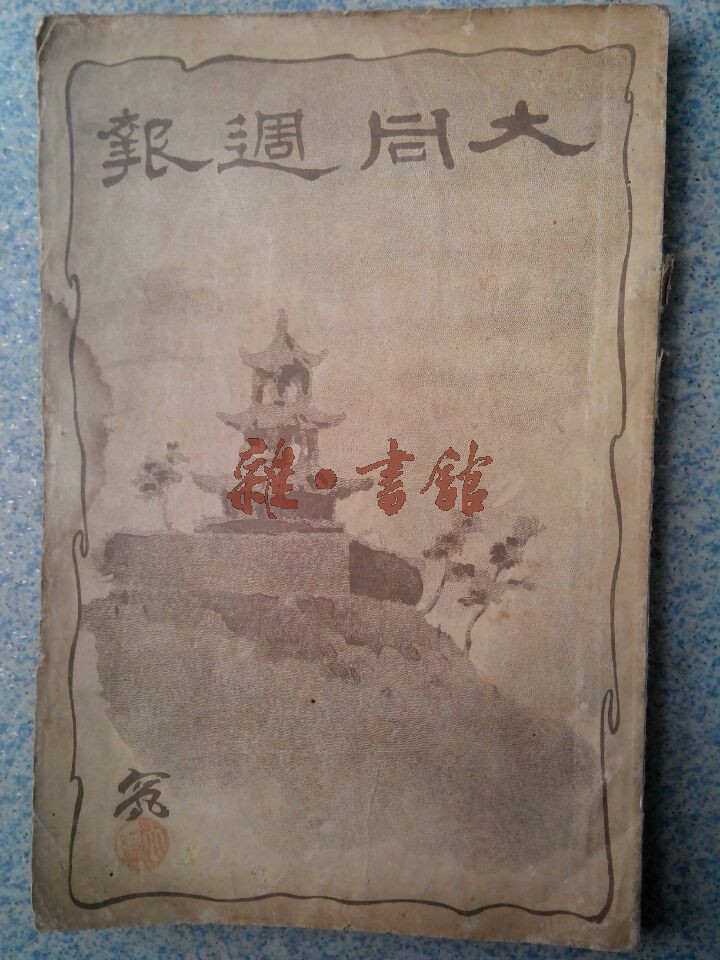 大同週報
雜·書館